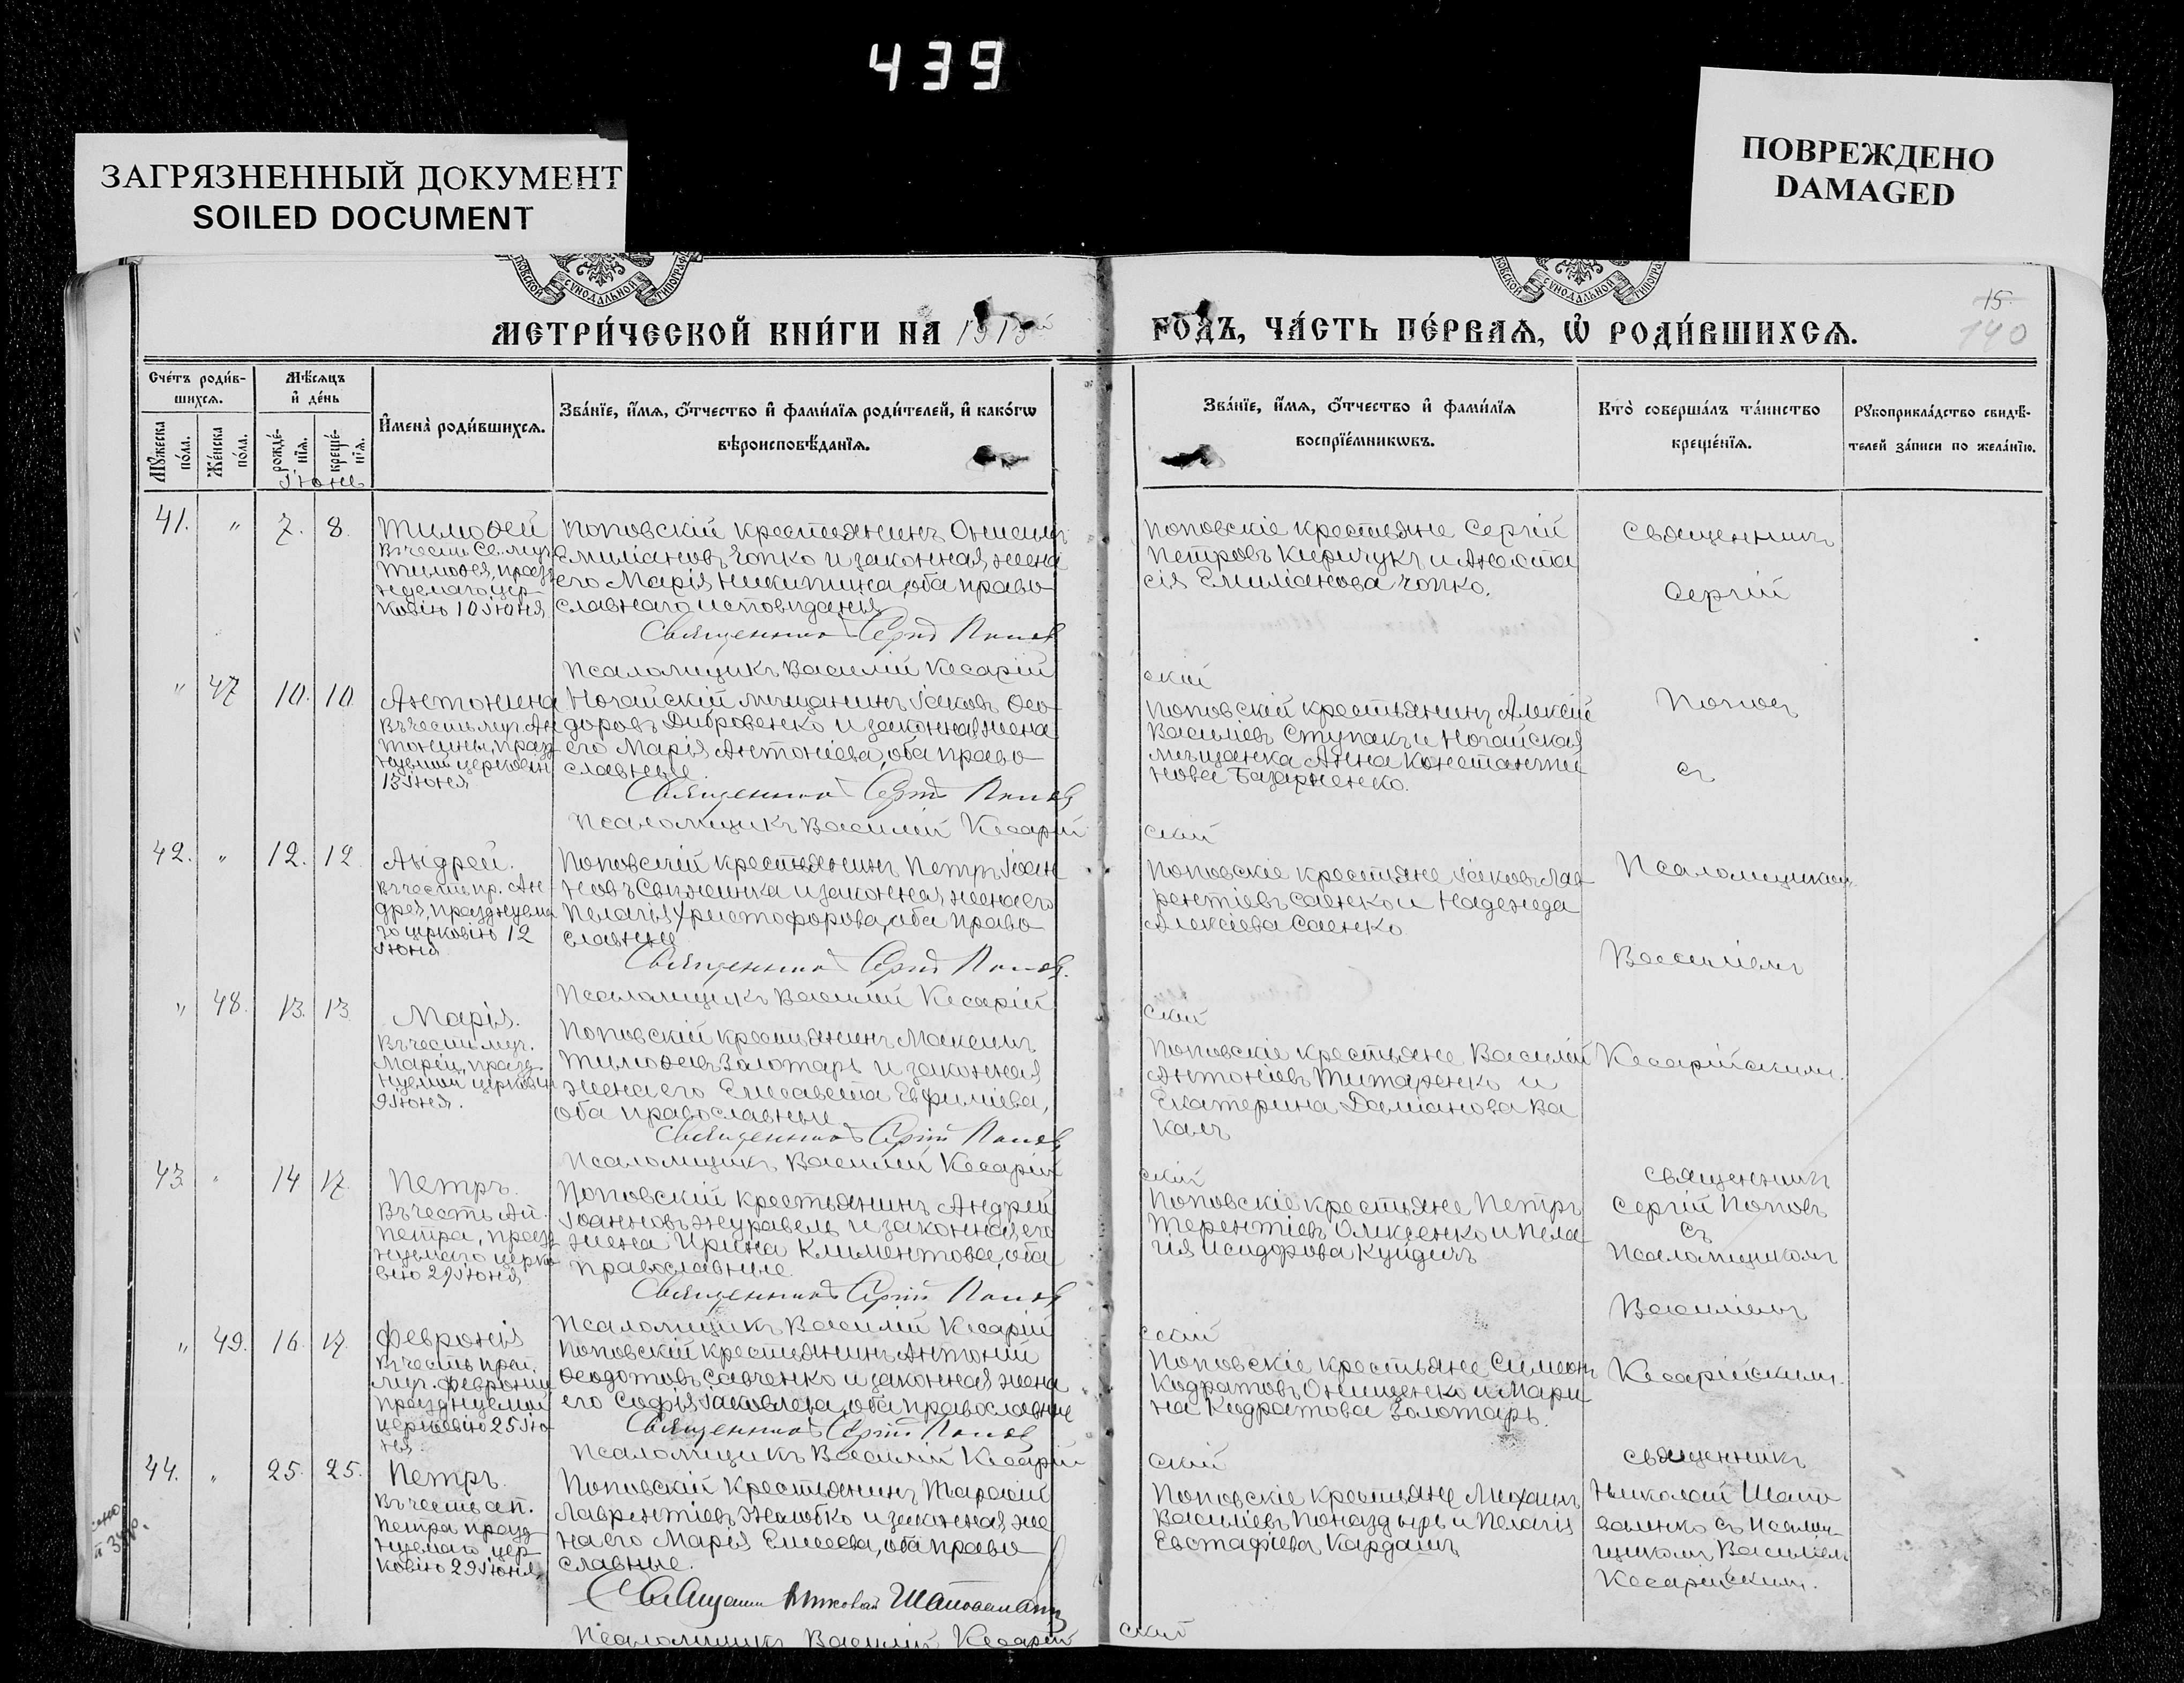 439
ЗАГРЯЗНЕННЫЙ ДОКУМЕНТ
SOILED DOCUMENT
ПОВРЕЖДЕНО
DAMAGED
15
140
МЕТРИ́ЧЕСКОЙ КНИ́ГИ НА 1913 ГОДЪ, ЧА́СТЬ ПЕ́РВАѦ, Ѡ҆ РОДИ́ВШИХСѦ.
Сче́тъ роди́в-
шихсѧ.
Мꙋ́жеска по́ла.
Же́нска по́ла.
Мѣ́сѧцъ
и҆ де́нь
рожде́-
нїѧ.
креще́-
нїѧ.
Іюнь
И҆мена̀ роди́вшихсѧ.
Зва́нїе, и҆́мѧ, ѻ҆́тчество и҆ фами́лїѧ роди́телей, и҆ како́гѡ
вѣроисповѣ́данїѧ.
Зва́нїе, и҆́мѧ, ѻ҆́тчество и҆ фами́лїѧ
воспрїе́мникѡвъ.
Кто̀ соверша́лъ та́инство
креще́нїѧ.
Рꙋкоприкла́дство свидѣ́-
телей за́писи по жела́нїю.
41. " 7. 8.
Тимоѳей
Въ честь Св. муч.
Тимоѳея, празд
нуемаго цер
ковію 10 Іюня
Поповскій крестьянинъ Онисимъ
Емиліановъ Чопко и законная жена
его Марія Никитина, оба право
славнаго исповѣданія
Священникъ Сергій Поповъ
Псаломщикъ Василій Кесарій
скій
Поповскіе крестьяне Сергій
Петровъ Киричукъ и Анаста
сія Емиліанова Чопко.
Священникъ
Сергій
" 47 10. 10.
Антонина
Въ честь муч. Ан
тонины, празд
нуемой церковію
13 Іюня
Ногайскій мѣщанинъ Іаковъ Ѳео
доровъ Дибровенко и законная жена
его Марія Антоніева, оба право
славные.
Священникъ Сергій Поповъ
Псаломщикъ Василій Кесарій
скій
Поповскій крестьянинъ Алексій
Василіевъ Ступакъ и Ногайская
мѣщанка Анна Константи
нова Базарненко.
Поповъ
съ
42. " 12. 12
Андрей.
Въ честь пр. Ан
дрея, празднуема
го церковію 12
Іюня
Поповскій крестьянинъ Петръ Іоан
новъ и законная жена его
Пелагія Христофорова, оба право
славные
Священникъ Сергій Поповъ.
Псаломщикъ Василій Кесарій
скій
Поповскіе крестьяне Іаковъ Лав
рентіевъ Саенко и Надежда
Алексіева Саенко
Псаломщикомъ
Василіемъ
" 48. 13. 13
Марія.
Въ честь муч.
Маріи, празд
нуемой церковію
9 Іюня.
Поповскій крестьянинъ Максимъ
Тимоѳеевъ Золотарь и законная
жена его Елисавета Евфиміева,
оба православные
Священникъ Сергій Поповъ
Псаломщикъ Василій Кесарій
скій
Поповскіе крестьяне Василій
Антоніевъ Титаренко и
Екатерина Даміанова Ва
калъ
Кесарійскимъ.
43. " 14 17.
Петръ.
Въ честь Ап.
Петра, празд
нуемаго церко
вію 29 Іюня
Поповскій крестьянинъ Андрей
Іоанновъ Журавель и законная его
жена Ирина Климентова, оба
православные
Священникъ Сергій Поповъ
Псаломщикъ Василій Кесарій
скій
Поповскіе крестьяне Петръ
Терентіевъ Олексенко и Пела
гія Исидорова Куйдичъ
Священникъ
Сергій Поповъ
съ
Псаломщикомъ
Василіемъ
" 49. 16. 17.
Февронія
Въ честь преп.
муч. Февроніи
празднуемой
церковію 25 Ію
ня.
Поповскій крестьянинъ Антоній
Ѳеодотовъ Савченко и законная жена
его Софія Іаковлева, оба православные
Священникъ Сергій Поповъ
Псаломщикъ Василій Кесарій
скій
Поповскіе крестьяне Симеонъ
Кодратовъ Онищенко и Мари
на Кодратова Золотарь.
Кесарійскимъ.
44. " 25. 25.
Петръ.
Въ честь ап.
Петра празд
нуемаго цер
ковію 29 Іюня.
Поповскій крестьянинъ Тарасій
Лаврентіевъ и законная же
на его Марія Елисеева, оба право
славные.
Священникъ Николай Шаповаленко
Псаломщикъ Василій Кесарій
скій
Поповскіе крестьяне Михаилъ
Василіевъ Поназдырь и Пелагія
Евстафіева Кардашъ
Священникъ
Николай Шапо
валенко съ псалом
щикомъ Василіемъ
Кесарійскимъ.